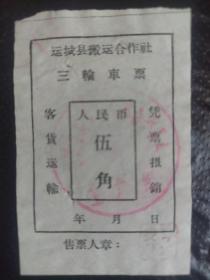 运城县搬运合作社
三輪車票
客货运输
人民币
伍角
凭票报銷
年 月 日
售票人章：